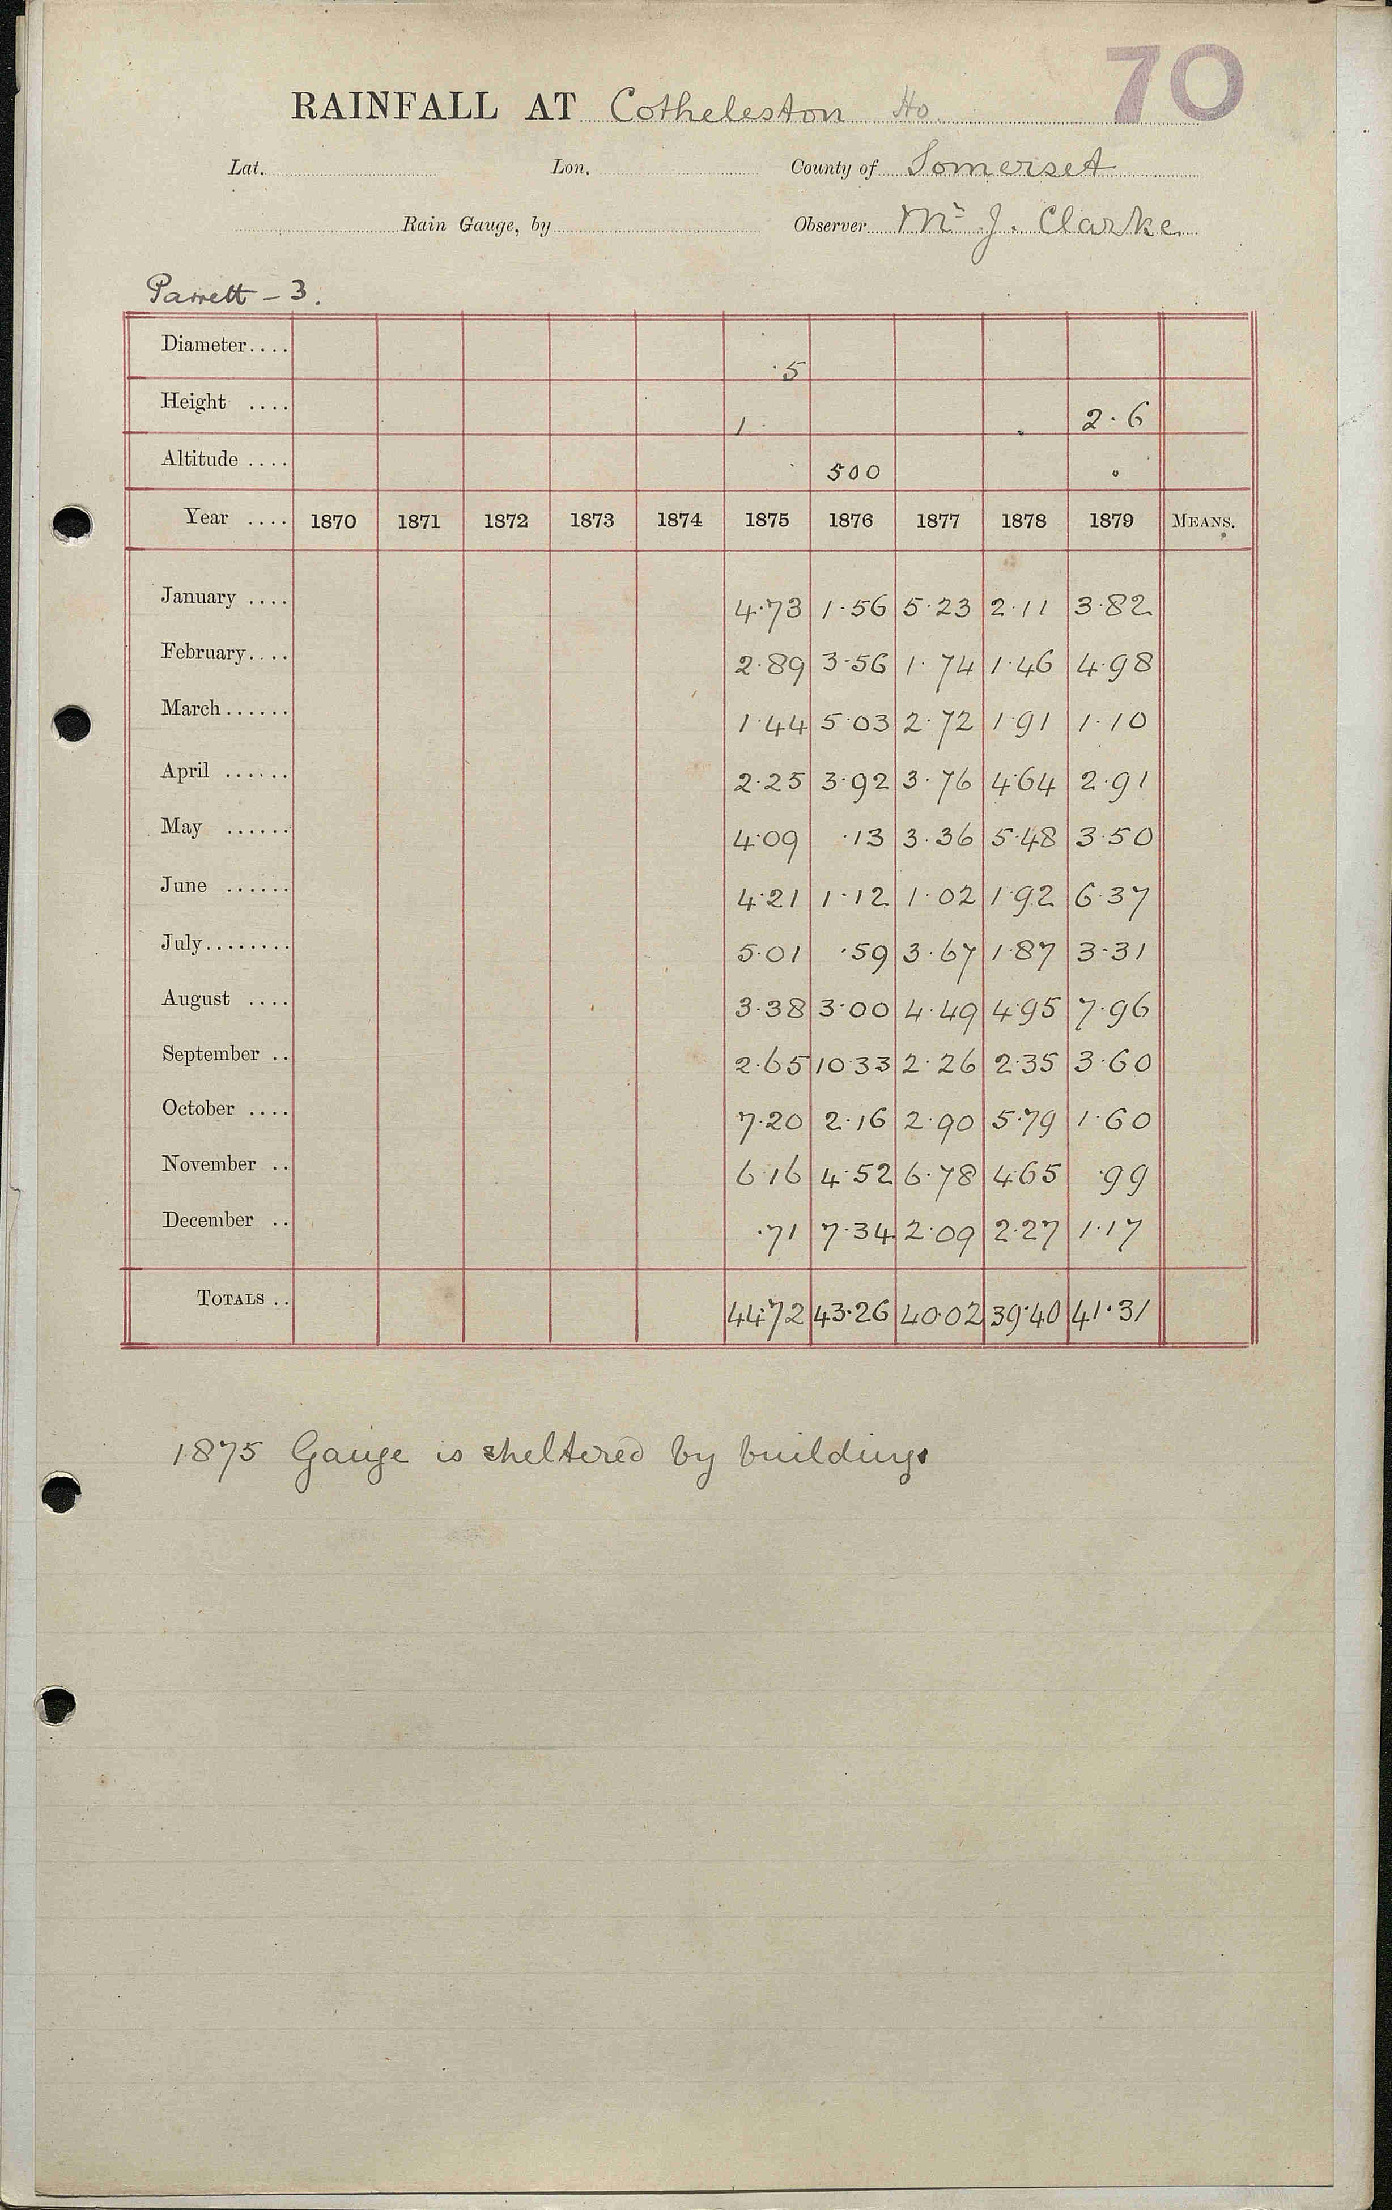 70
RAINFALL AT Cothelestone Ho.
Lat. Lon. County of Somerset
Rain Gauge, by Observer Mr J. Clarke
Parrett - 3.
Diameter.... 5
Height .... 1 2.6
Altitude .... 500
Year .... 1870 1871 1872 1873 1874 1875 1876 1877 1878 1879 MEANS.
January .... 4.73 1.56 5.23 2.11 3.82
February.... 2.89 3.56 1.74 1.46 4.98
March...... 1.44 5.03 2.72 1.91 1.10
April ...... 2.25 3.92 3.76 4.64 2.91
May ...... 4.09 .13 3.36 5.48 3.50
June ...... 4.21 1.12 1.02 1.92 6.37
July........ 5.01 .59 3.67 1.87 3.31
August .... 3.38 3.00 4.49 4.95 7.96
September .. 2.65 10.33 2.26 2.35 3.60
October .... 7.20 2.16 2.90 5.79 1.60
November .. 6.16 4.52 6.78 4.65 .99
December .. .71 7.34 2.09 2.27 1.17
TOTALS .. 44.72 43.26 40.02 39.40 41.31
1875 Gauge is sheltered by buildings